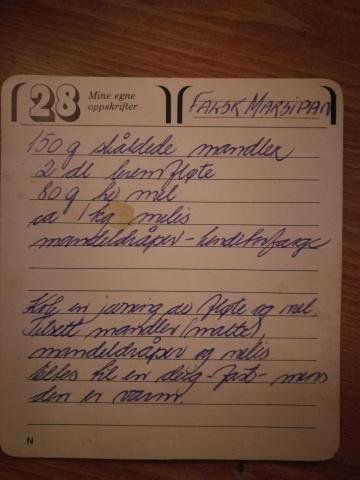 28
Mine egne
oppskrifter
FALSK MARSIPAN
150 g skåldede mandler
2 dl kremfløte
80 g hv mel
ca 1 kg melis
mandeldråper - konditorfarge
Kok en jevning av fløte og mel.
Tilsett mandler (malte),
mandeldråper og melis
Eltes til en deig - fast - mens
den er varm.
N